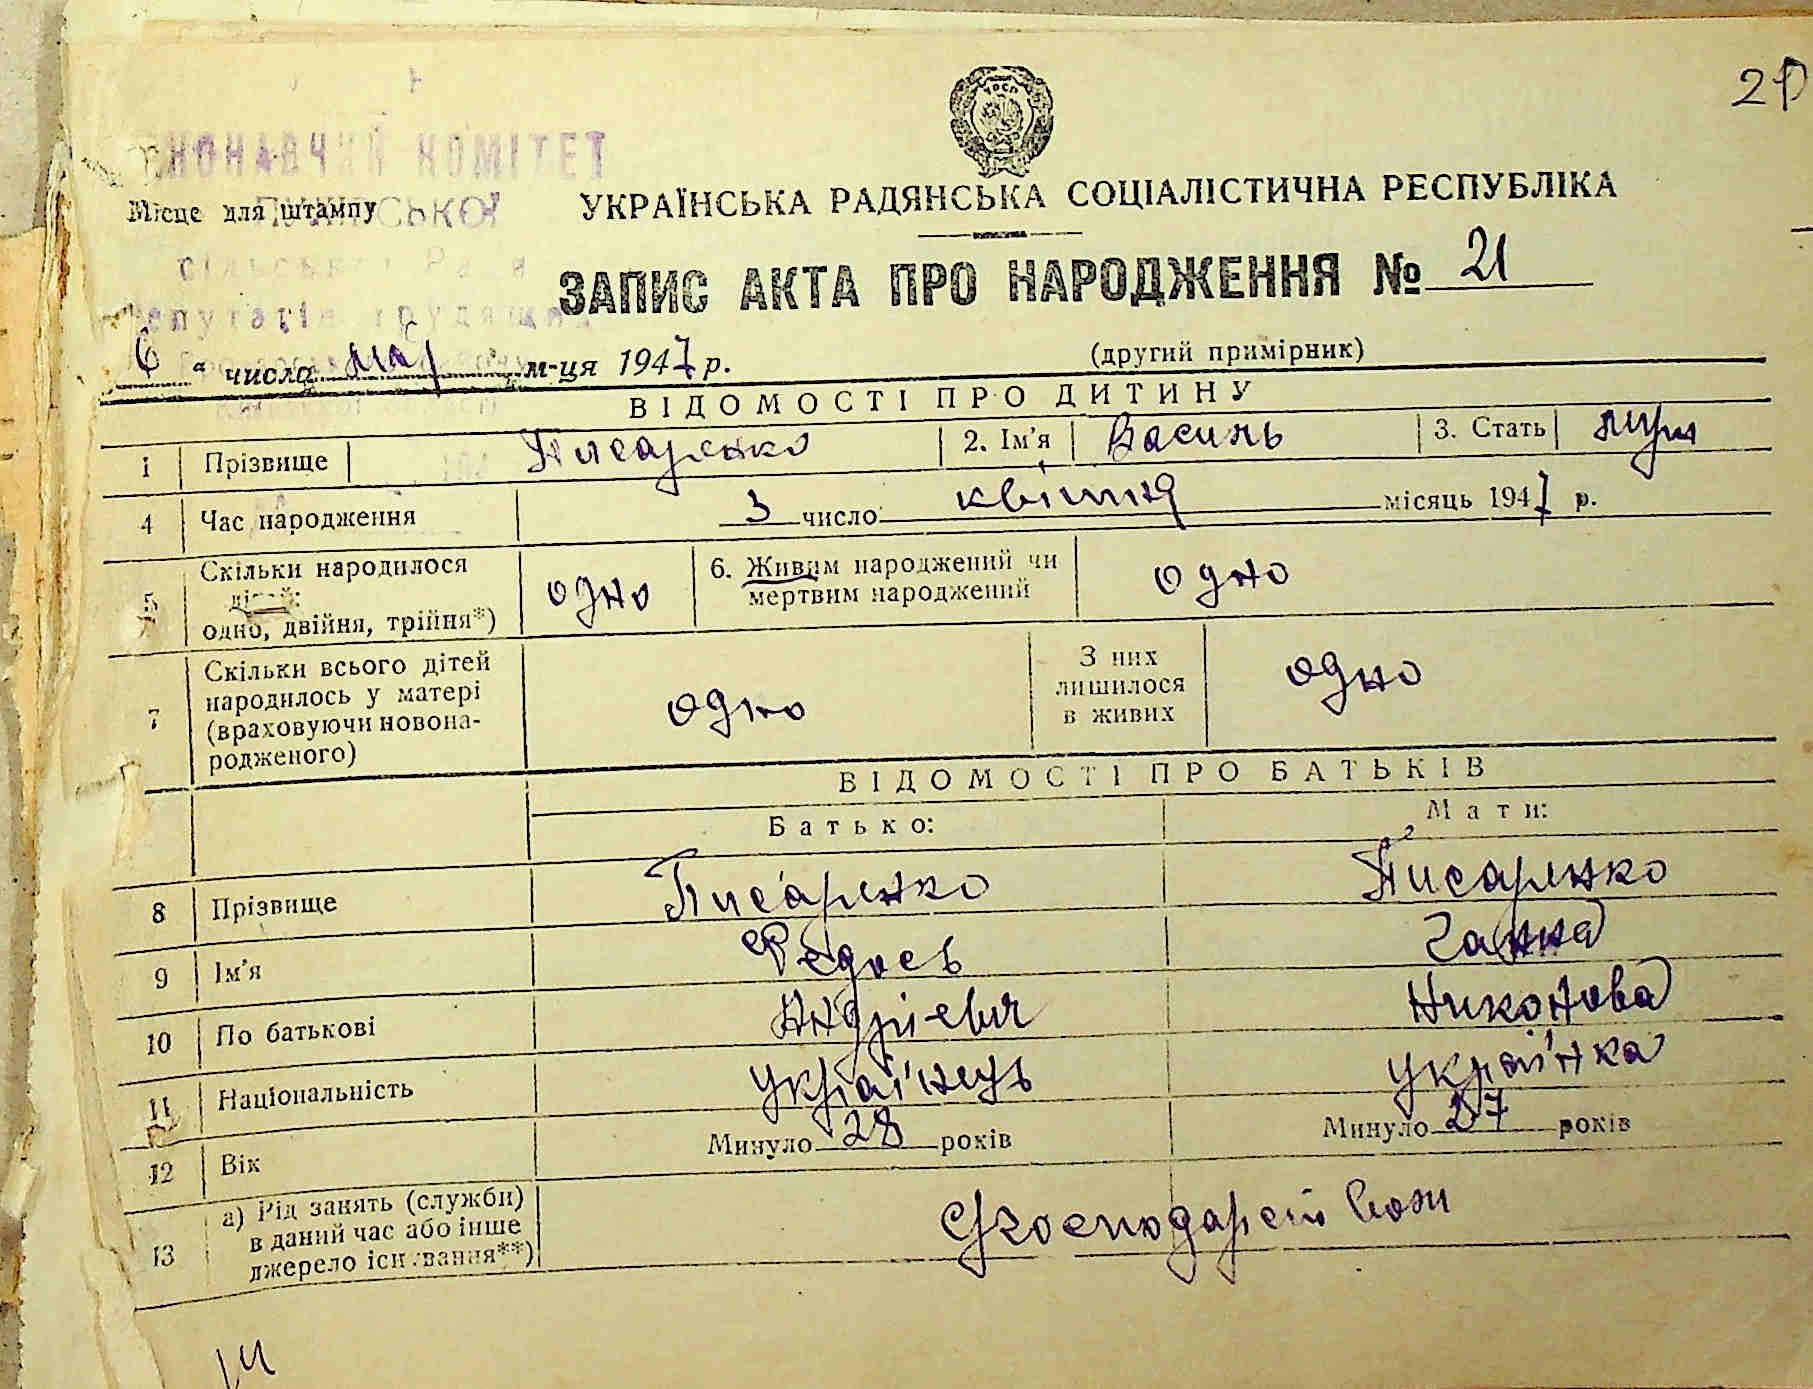 20
УРСР
ВИКОНАВЧИЙ КОМІТЕТ
Місце для штампу
СЬКОЇ
УКРАЇНСЬКА РАДЯНСЬКА СОЦІАЛІСТИЧНА РЕСПУБЛІКА
сільської Ради
депутатів трудящих
ЗАПИС АКТА ПРО НАРОДЖЕННЯ № 21
6 " числа мая м-ця 1947 р.
(другий примірник)
ВІДОМОСТІ ПРО ДИТИНУ
1 Прізвище Писаренко 2. Ім'я Василь 3. Стать муж
4 Час народження 3 число квітня місяць 1947 р.
5 Скільки народилося дітей: одно, двійня, трійня*) одно 6. Живим народжений чи мертвим народжений одно
7 Скільки всього дітей народилось у матері (враховуючи новонародженого) одно З них лишилося в живих одно
ВІДОМОСТІ ПРО БАТЬКІВ
Батько: Мати:
8 Прізвище Писаренко Писаренко
9 Ім'я Федось Ганна
10 По батькові Андрієвич Никонова
11 Національність українець українка
12 Вік Минуло 28 років Минуло 27 років
13 а) Рід занять (служби) в даний час або інше джерело існування**)